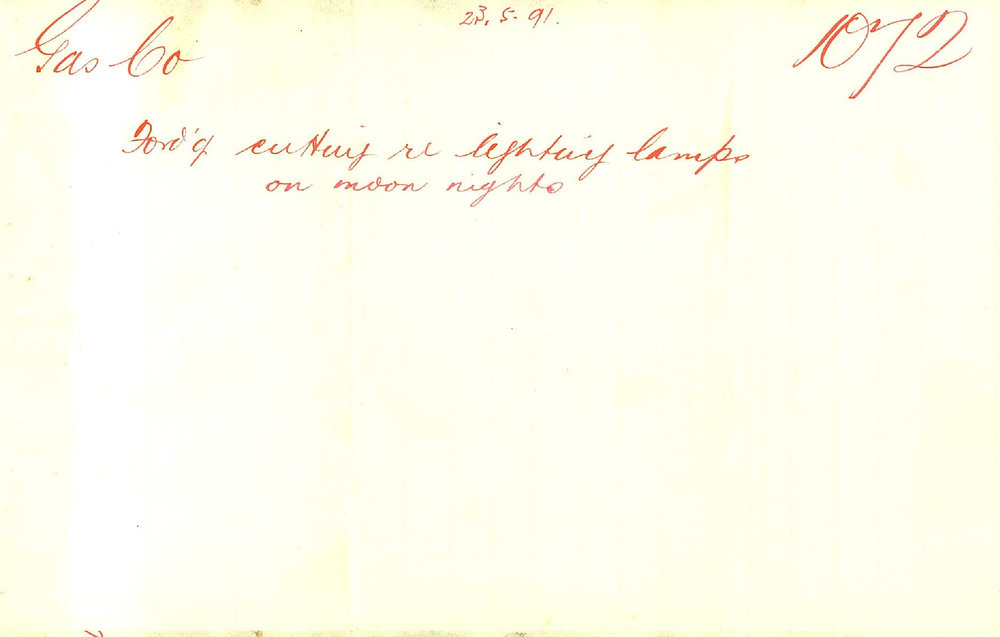 23. 5. 91.
Gas Co
1072
Ford'g cutting re lighting lamps
on moon nights